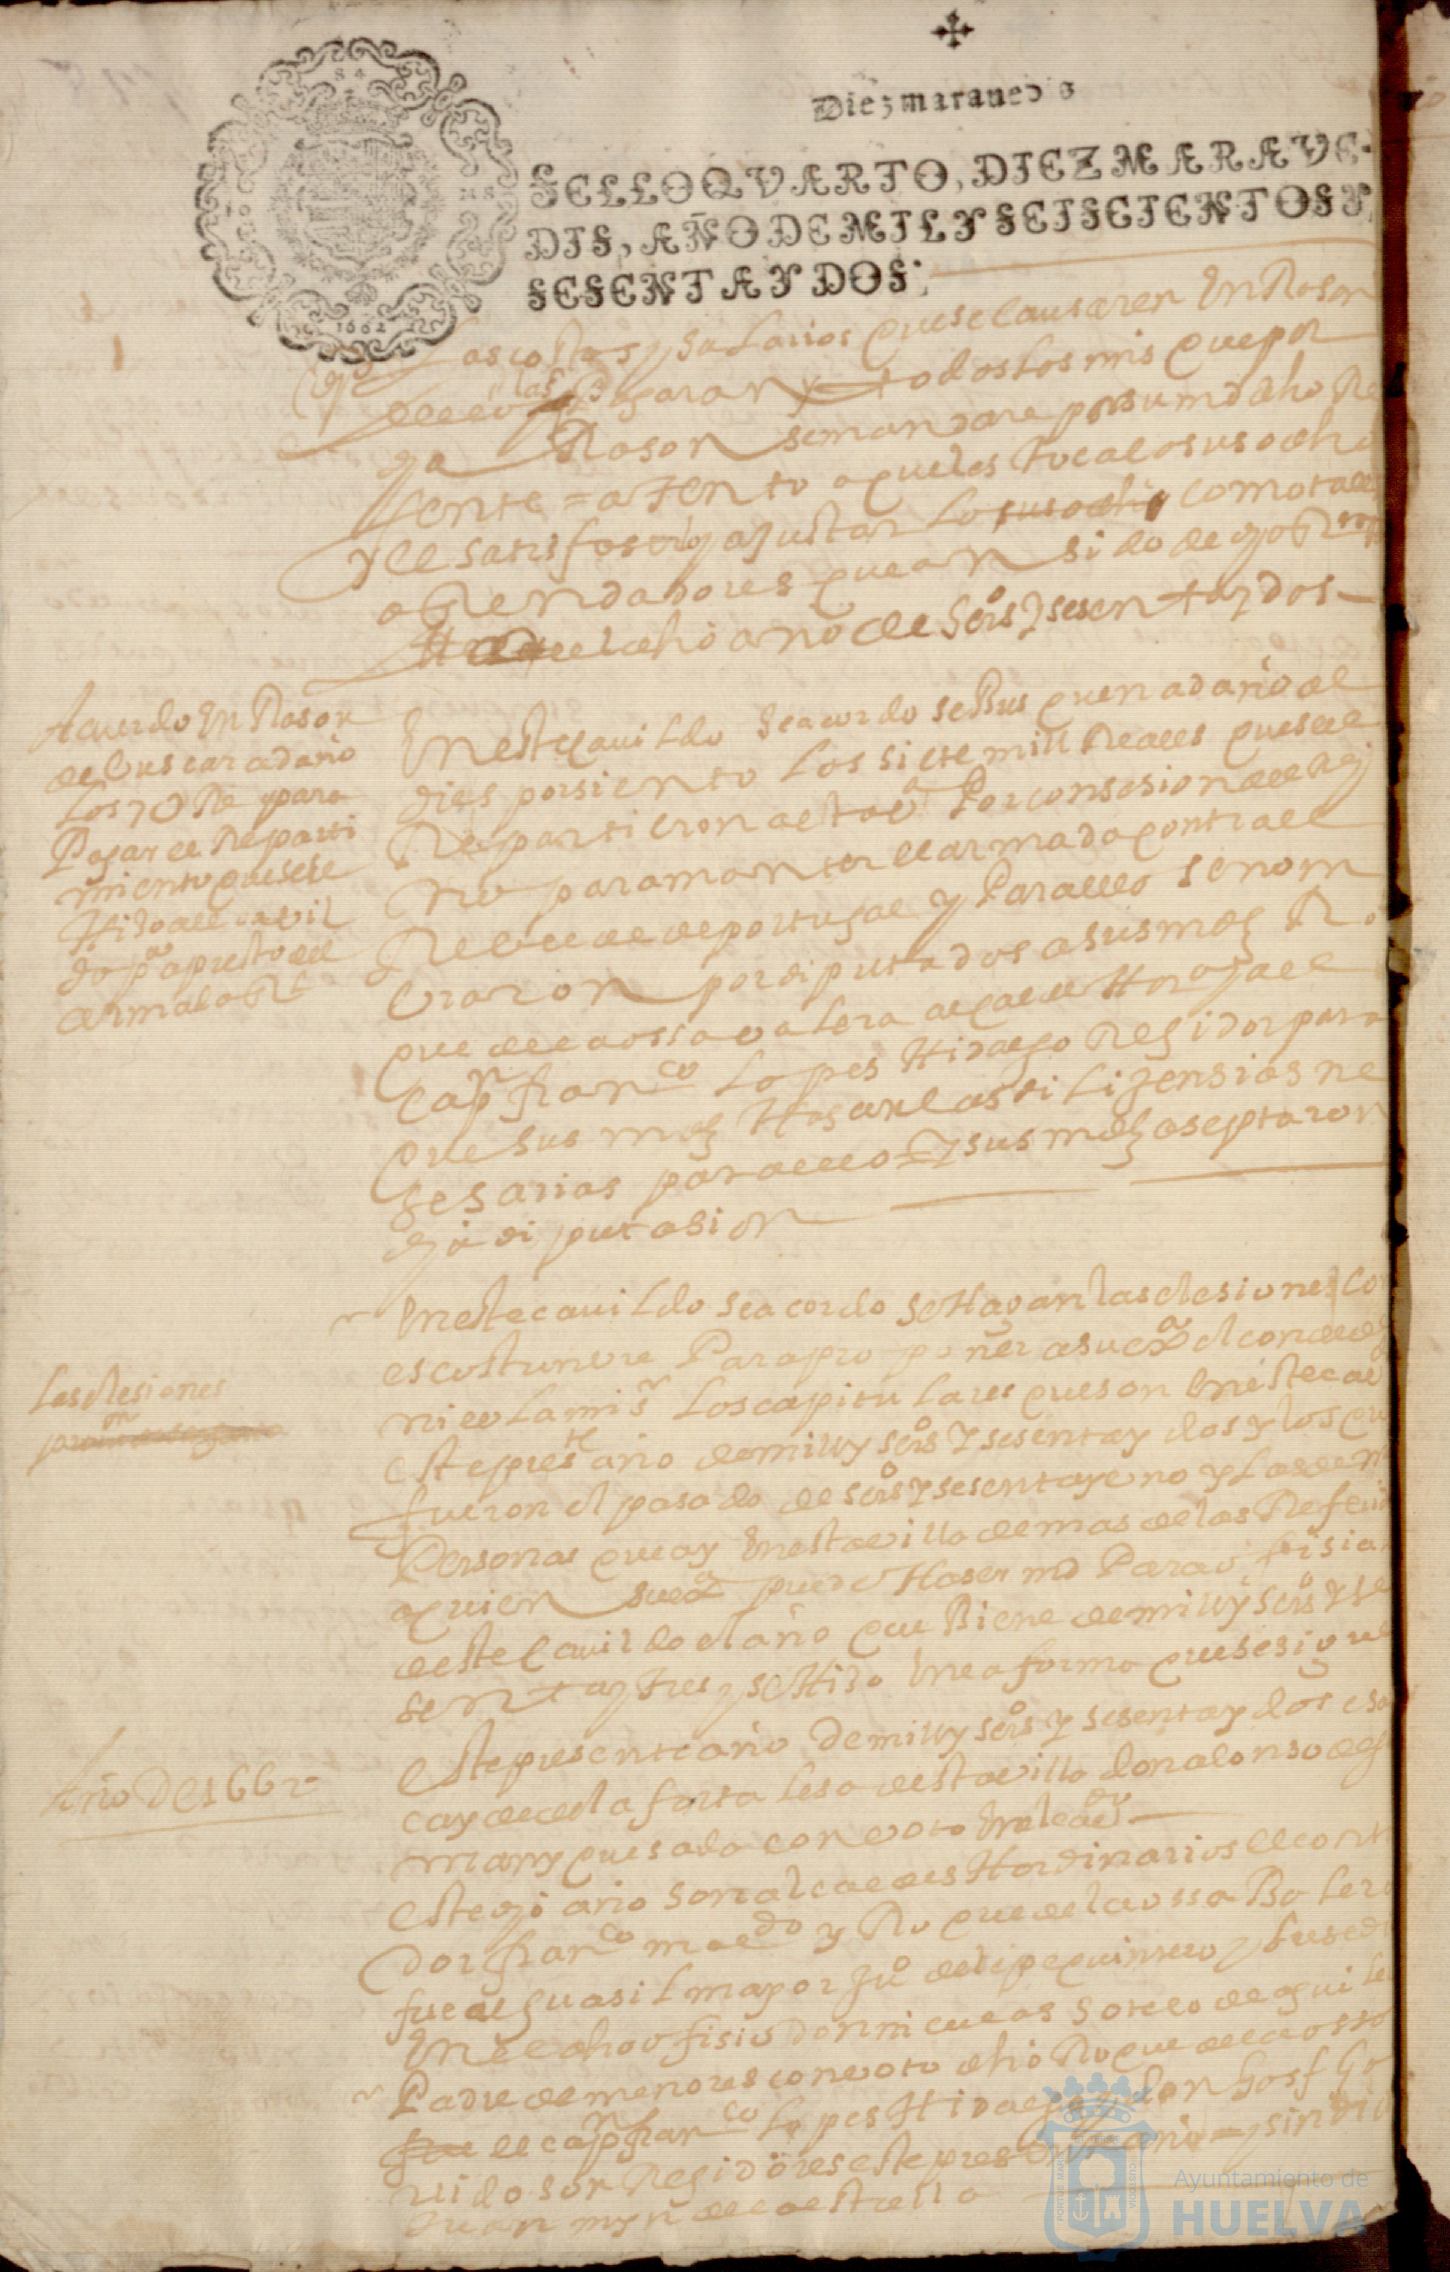 Diez maravedis
SELLO QVARTO, DIEZ MARAVE-
DIS, AÑO DE MIL Y SEISCIENTOS Y
SESENTA Y DOS.
1662
las costas y salarios que se causaren En Rason
pagaran y todos los mrs que por
Rason se mandare por su md dho Re
jente = atento a que les toca lo suso dho
y el satisfaser y ajustar lo como tales
aRendadores que an sido
del dho año de seis y sesenta y dos
Acuerdo En Rason
de buscar a daño
los 7U Rs para
Pagar el Reparti
miento que se le
Hiso a el cavil
do pa apresto de el
armada Rl
En este cavildo se acordo se Busquen a daño al
dies por siento los siete mill Reales que se le
Repartieron a esta va Por consesion del Rej
no para mantener el armada contra el
Revelde de portugal y Para ello se nom
braron por diputados a sus mds Ro
que de la ossa valera alcalde Hordo y a el
capn franco lopes Hidalgo Regidor para
que sus mds Hagan las dilijensias ne
sesarias para ello = Y sus mds aseptaron
dha diputasion
Las elesiones
En este cavildo se acordo se Hagan las elesiones co
es costumbre Para proponer a su exa el conde de
niebla mi sr los capitulares que son En este cav
este preste año de mill y seis y sesenta y dos y los que
fueron el pasado de seis y sesenta y uno y las demas
Personas que ay En esta villa demas de las Referid
a quien su exa puede Haser md Para ofisial
deste cavildo el año que Biene de mill y seis y se
senta y tres y se Hiso En la forma que se sigue
Año De 1662
este presente año De mill y seis y sesenta y dos es al
cayde de la fortalesa desta villa don alonso de
man y quesada con voto En el cavdo
este dho año son alcaldes Hordinarios el conta
dor franco y Roque de la ossa Balera
fue alguasil mayor Juo felipe quintero y susedio
En el dho ofisio don nicolas sotelo de aguilar
Padre de menores con voto dho Roque de la ossa
el capn franco lopes Hidalgo y don Josf Ga
rrido son Regidores este preste año = y sindico
Juan mrn de la estrella
Ayuntamiento de
HUELVA